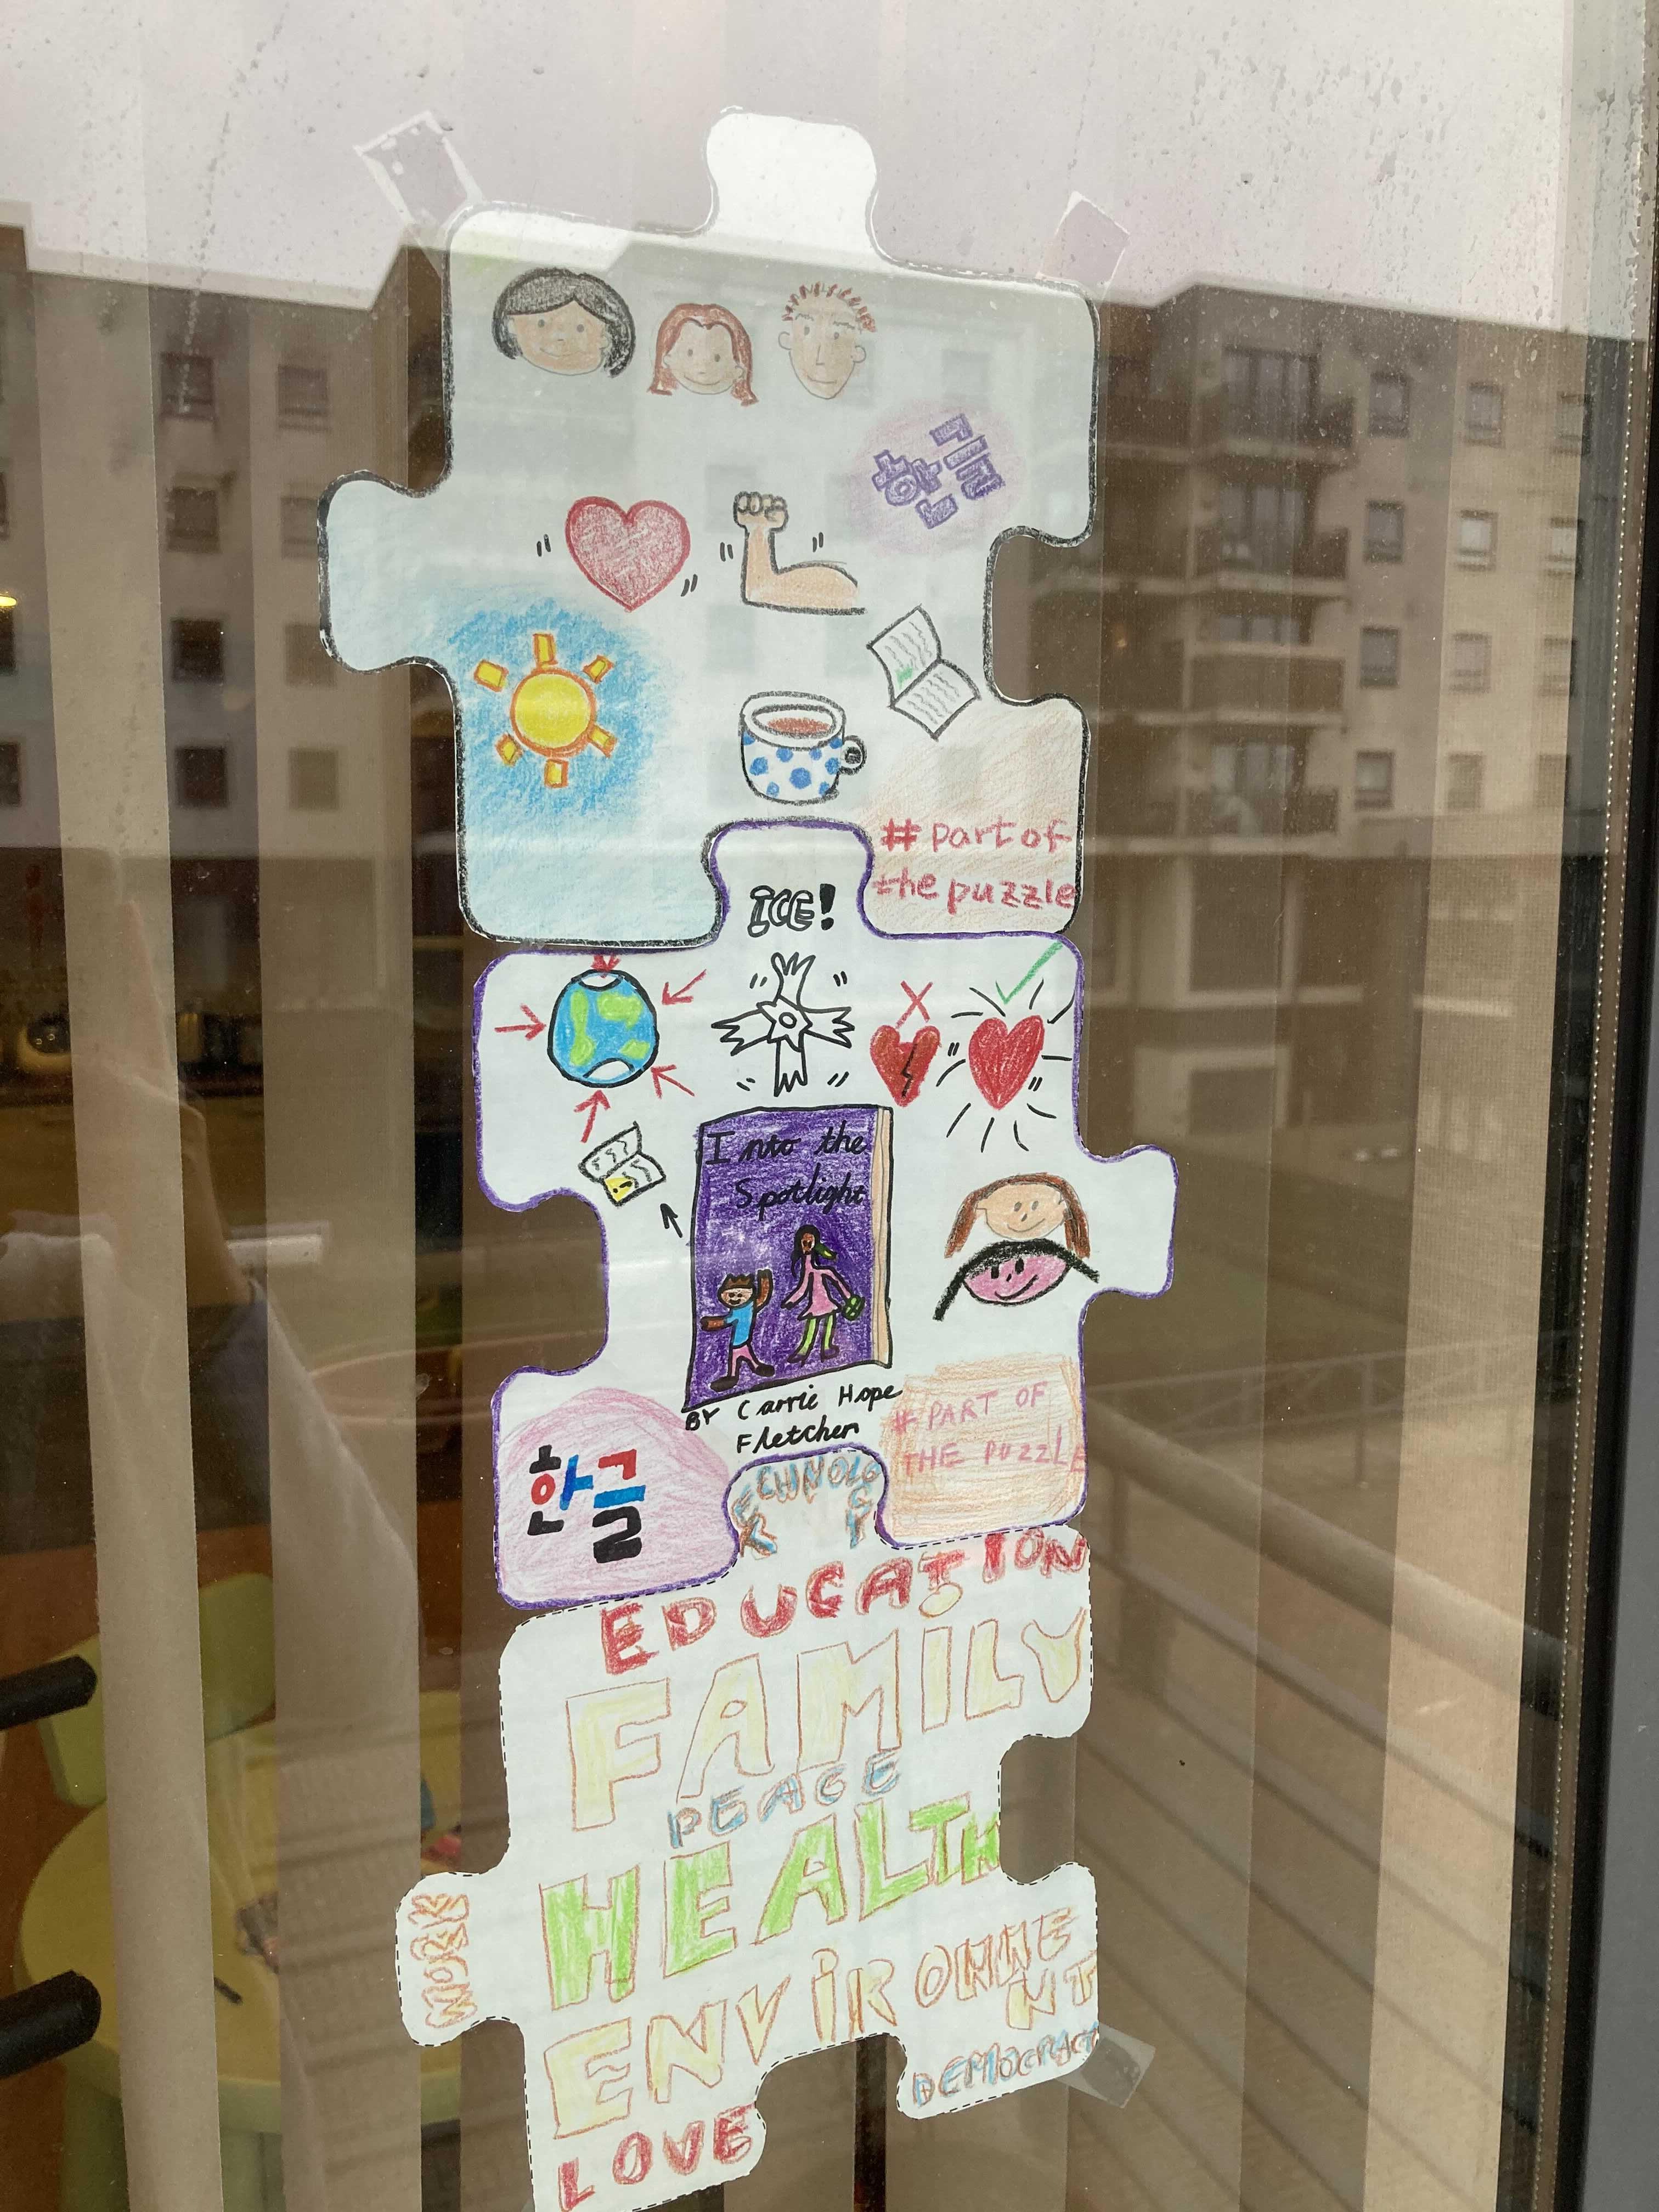 한글
# part of
the puzzle
ICE!
Into the
Spotlight
BY Carrie Hope
Fletcher
# PART OF
THE PUZZLE
한글
EDUCATION
FAMILY
PEACE
HEALTH
WORK
ENVIRONME
NT
DEMOCRACY
LOVE